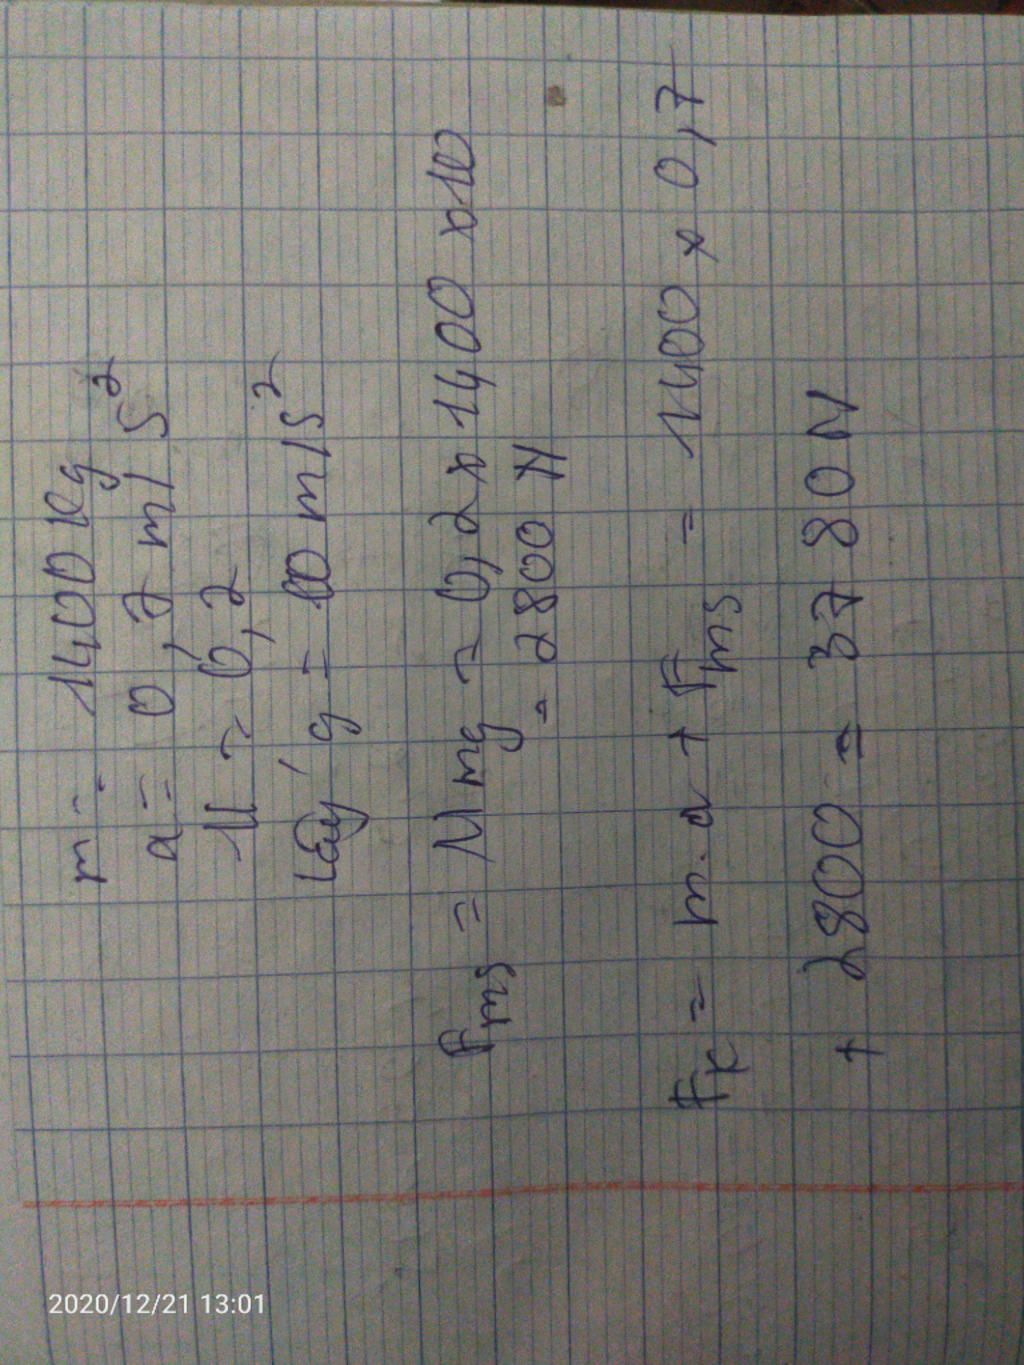 m = 1400 kg
a = 0,7 m/s²
μ = 0,2
lấy g = 10 m/s²
Fms = μmg = 0,2 x 1400 x 10
= 2800 N
Fk = m.a + Fms = 1400 x 0,7
+ 2800 = 3780 N
2020/12/21 13:01